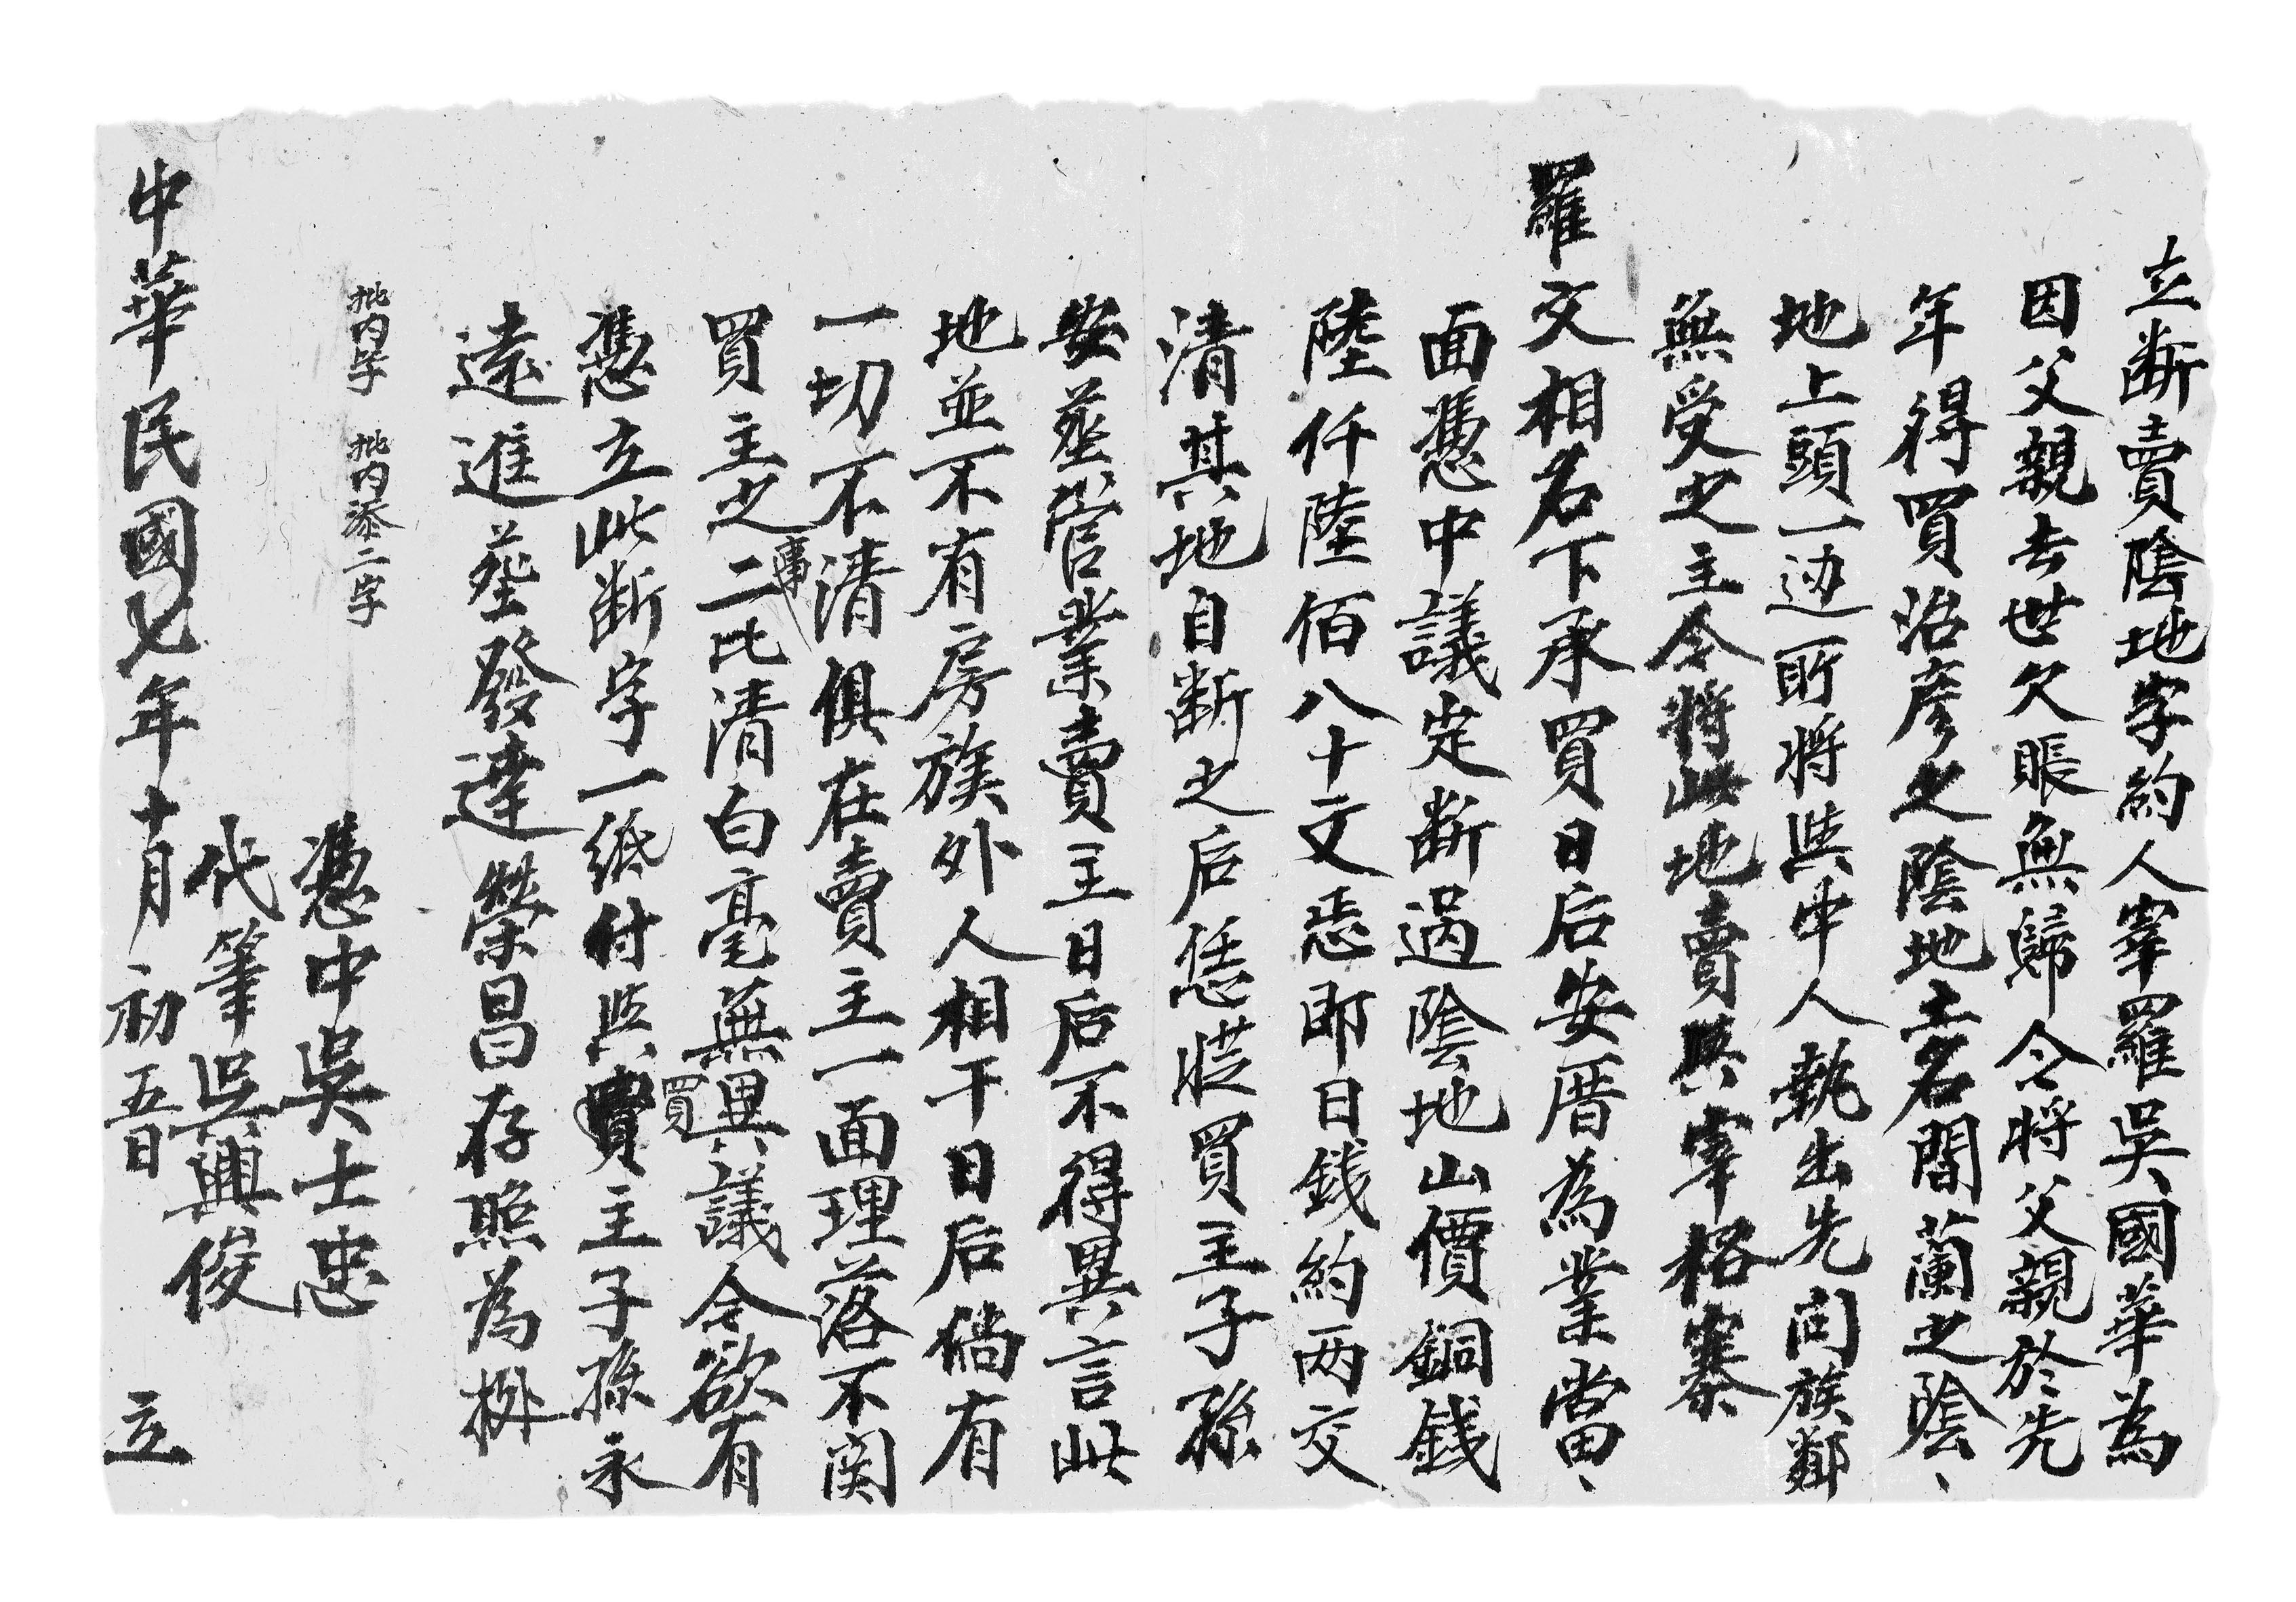 立断賣陰地字約人宰羅吳國華為
因父親去世欠賬無歸今將父親於先
年得買洛彦之陰地土名閻蘭之陰、
地上頭一边所將與中人執出先问族鄰
無受之主今將此地賣與宰格寨
羅文相名下承買日后安厝為業當、
面憑中議定断過陰地山價銅錢
陸仟陸佰八十文悉即日錢約两交
清其地自断之后恁從買主子孫
安塟管業賣主日后不得異言此
地並不有房族外人相干日后倘有
一切不清俱在賣主一面理落不関
買主之事二比清白毫無異議今欲有
憑立此断字一紙付與買主子孫永
遠進塟發達榮昌存照為㨿
批内字 批内添二字
憑中吳士忠
代筆吳興俊
中華民國七年十月初五日 立